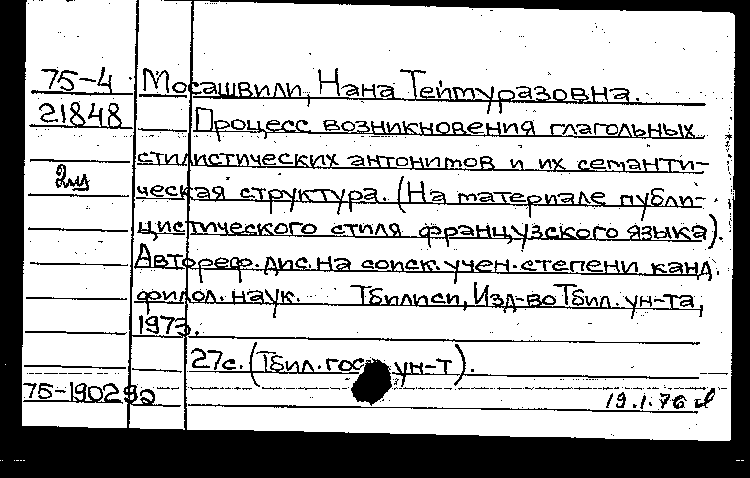 75-4 Мосашвили, Нана Теймуразовна.
21848 Процесс возникновения глагольных
стилистических антонимов и их семанти-
ческая структура. (На материале публи-
цистического стиля французского языка).
Автореф. дис. на соиск. учен. степени канд.
филол. наук. Тбилиси, Изд-во Тбил. ун-та,
1973.
27с. (Тбил. гос. ун-т).
75-19029
19.1.76